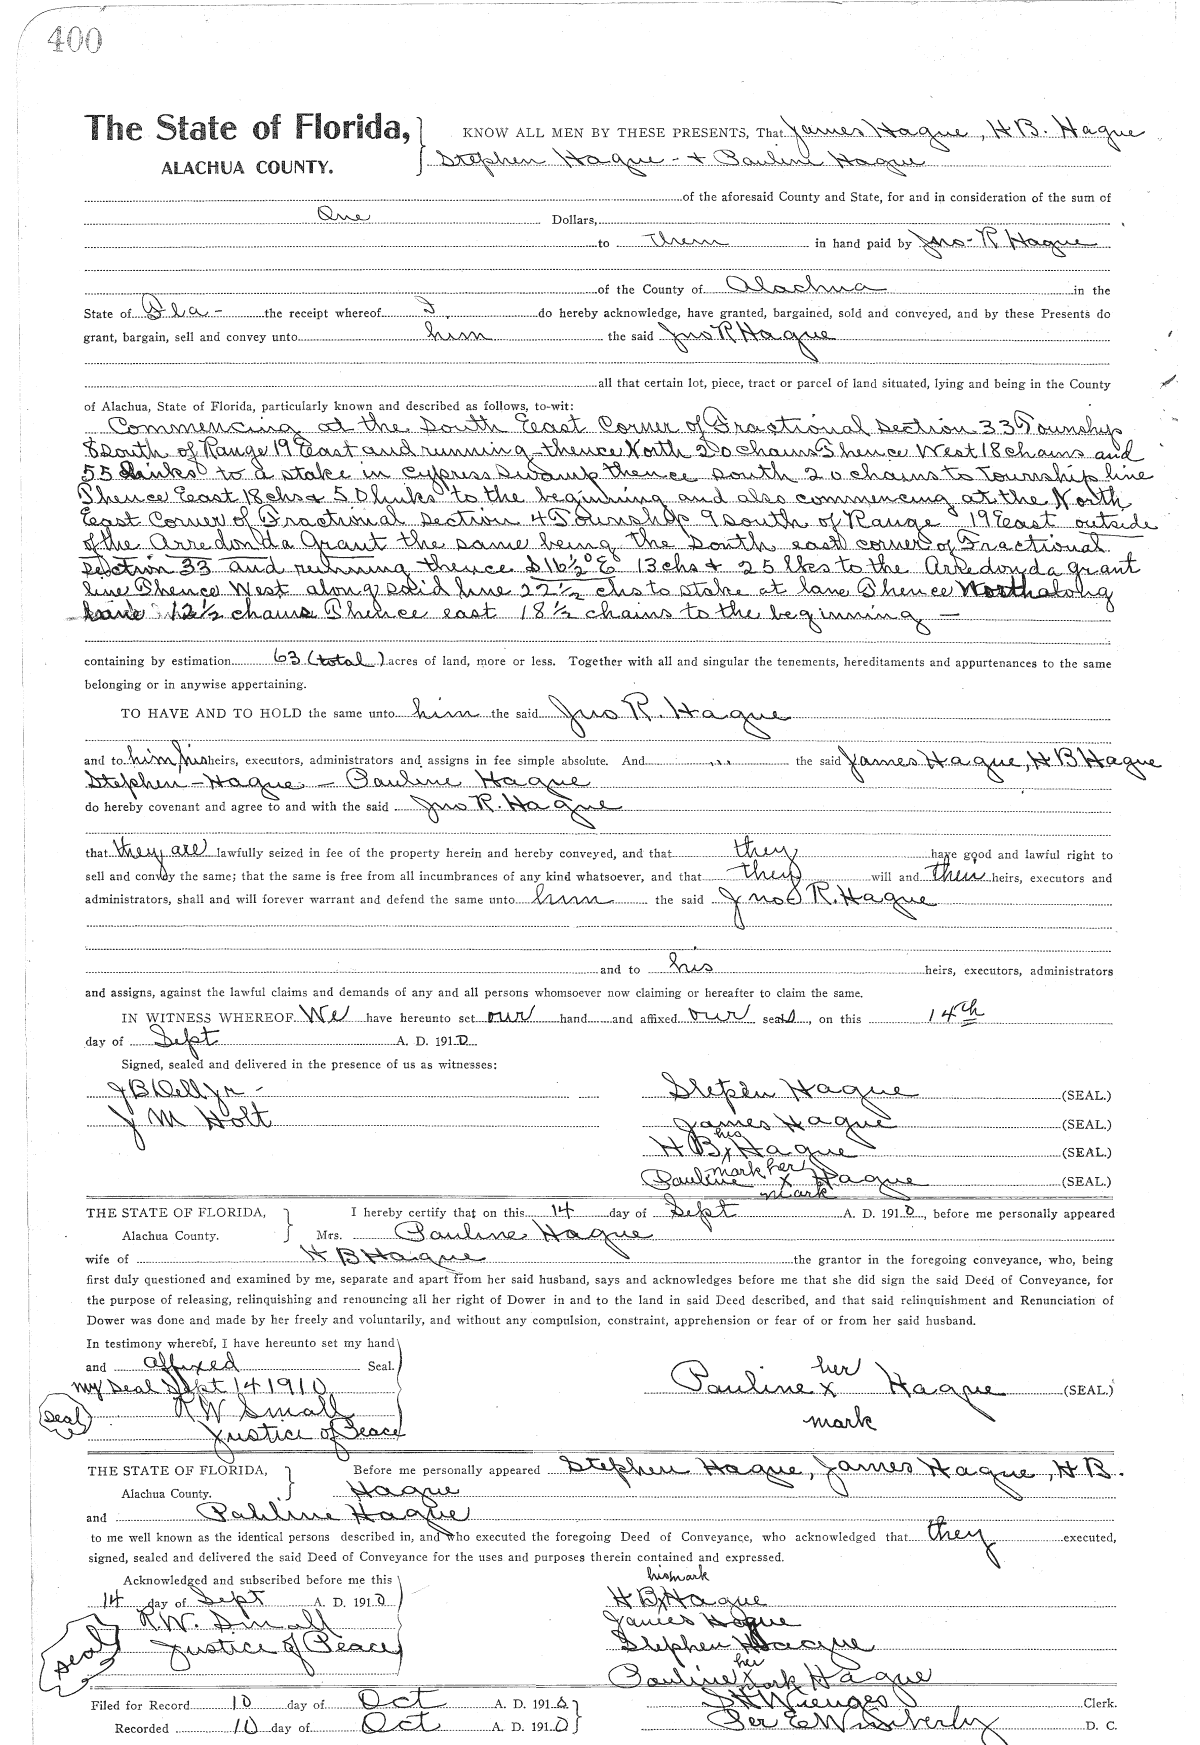 400
The State of Florida, } KNOW ALL MEN BY THESE PRESENTS, That James Hague, H B. Hague
ALACHUA COUNTY. Stephen Hague - + Pauline Hague
of the aforesaid County and State, for and in consideration of the sum of
One Dollars,
to them in hand paid by Jno- R Hague
of the County of Alachua in the
State of Fla - the receipt whereof I do hereby acknowledge, have granted, bargained, sold and conveyed, and by these Presents do
grant, bargain, sell and convey unto him the said Jno R Hague
all that certain lot, piece, tract or parcel of land situated, lying and being in the County
of Alachua, State of Florida, particularly known and described as follows, to-wit:
Commencing at the South East Corner of Fractional Section 33 Township
8 South of Range 19 East and running thence North 20 chains Thence West 18 chains and
55 links to a stake in cypress swamp thence south 20 chains to township line
Thence East 18 chs & 50 links to the beginning and also commencing at the North
East Corner of Fractional section 4 Township 9 south of Range 19 East outside
of the Arredonda Grant the same being the South east corner of Fractional
section 33 and running thence S 16½° E 13 chs & 25 lks to the Arredonda grant
line Thence West along said line 22½ chs to stake at lane Thence North along
lane 12½ chains Thence east 18½ chains to the beginning -
containing by estimation 63 (total) acres of land, more or less. Together with all and singular the tenements, hereditaments and appurtenances to the same
belonging or in anywise appertaining.
TO HAVE AND TO HOLD the same unto him the said Jno R. Hague
and to him, his heirs, executors, administrators and assigns in fee simple absolute. And the said James Hague, H B Hague
Stephen - Hague - Pauline Hague
do hereby covenant and agree to and with the said Jno R. Hague
that they are lawfully seized in fee of the property herein and hereby conveyed, and that they have good and lawful right to
sell and convey the same; that the same is free from all incumbrances of any kind whatsoever, and that they will and their heirs, executors and
administrators, shall and will forever warrant and defend the same unto him the said Jno R. Hague
and to his heirs, executors, administrators
and assigns, against the lawful claims and demands of any and all persons whomsoever now claiming or hereafter to claim the same.
IN WITNESS WHEREOF We have hereunto set our hand and affixed our seals, on this 14th
day of Sept A. D. 1910
Signed, sealed and delivered in the presence of us as witnesses:
J B Dell Jr - Stephen Hague (SEAL.)
J M Holt James Hague (SEAL.)
his
H B x Hague (SEAL.)
mark her
Pauline x Hague (SEAL.)
mark
THE STATE OF FLORIDA, } I hereby certify that on this 14 day of Sept A. D. 1910, before me personally appeared
Alachua County. Mrs. Pauline Hague
wife of H B Hague the grantor in the foregoing conveyance, who, being
first duly questioned and examined by me, separate and apart from her said husband, says and acknowledges before me that she did sign the said Deed of Conveyance, for
the purpose of releasing, relinquishing and renouncing all her right of Dower in and to the land in said Deed described, and that said relinquishment and Renunciation of
Dower was done and made by her freely and voluntarily, and without any compulsion, constraint, apprehension or fear of or from her said husband.
In testimony whereof, I have hereunto set my hand
and affixed Seal.
my Seal Sept 14 1910
her
Pauline x Hague (SEAL.)
mark
seal
R W Small
Justice of Peace
THE STATE OF FLORIDA, } Before me personally appeared Stephen Hague, James Hague, H B.
Alachua County. Hague
and Pauline Hague
to me well known as the identical persons described in, and who executed the foregoing Deed of Conveyance, who acknowledged that they executed,
signed, sealed and delivered the said Deed of Conveyance for the uses and purposes therein contained and expressed.
Acknowledged and subscribed before me this
14 day of Sept A. D. 1910
R.W. Small
Justice of Peace
seal
his mark
H B x Hague
James Hague
Stephen Hague
her
Pauline x mark Hague
Filed for Record 10 day of Oct A. D. 1910 S H Wienges Clerk.
Recorded 10 day of Oct A. D. 1910 Per E Wimberly D. C.